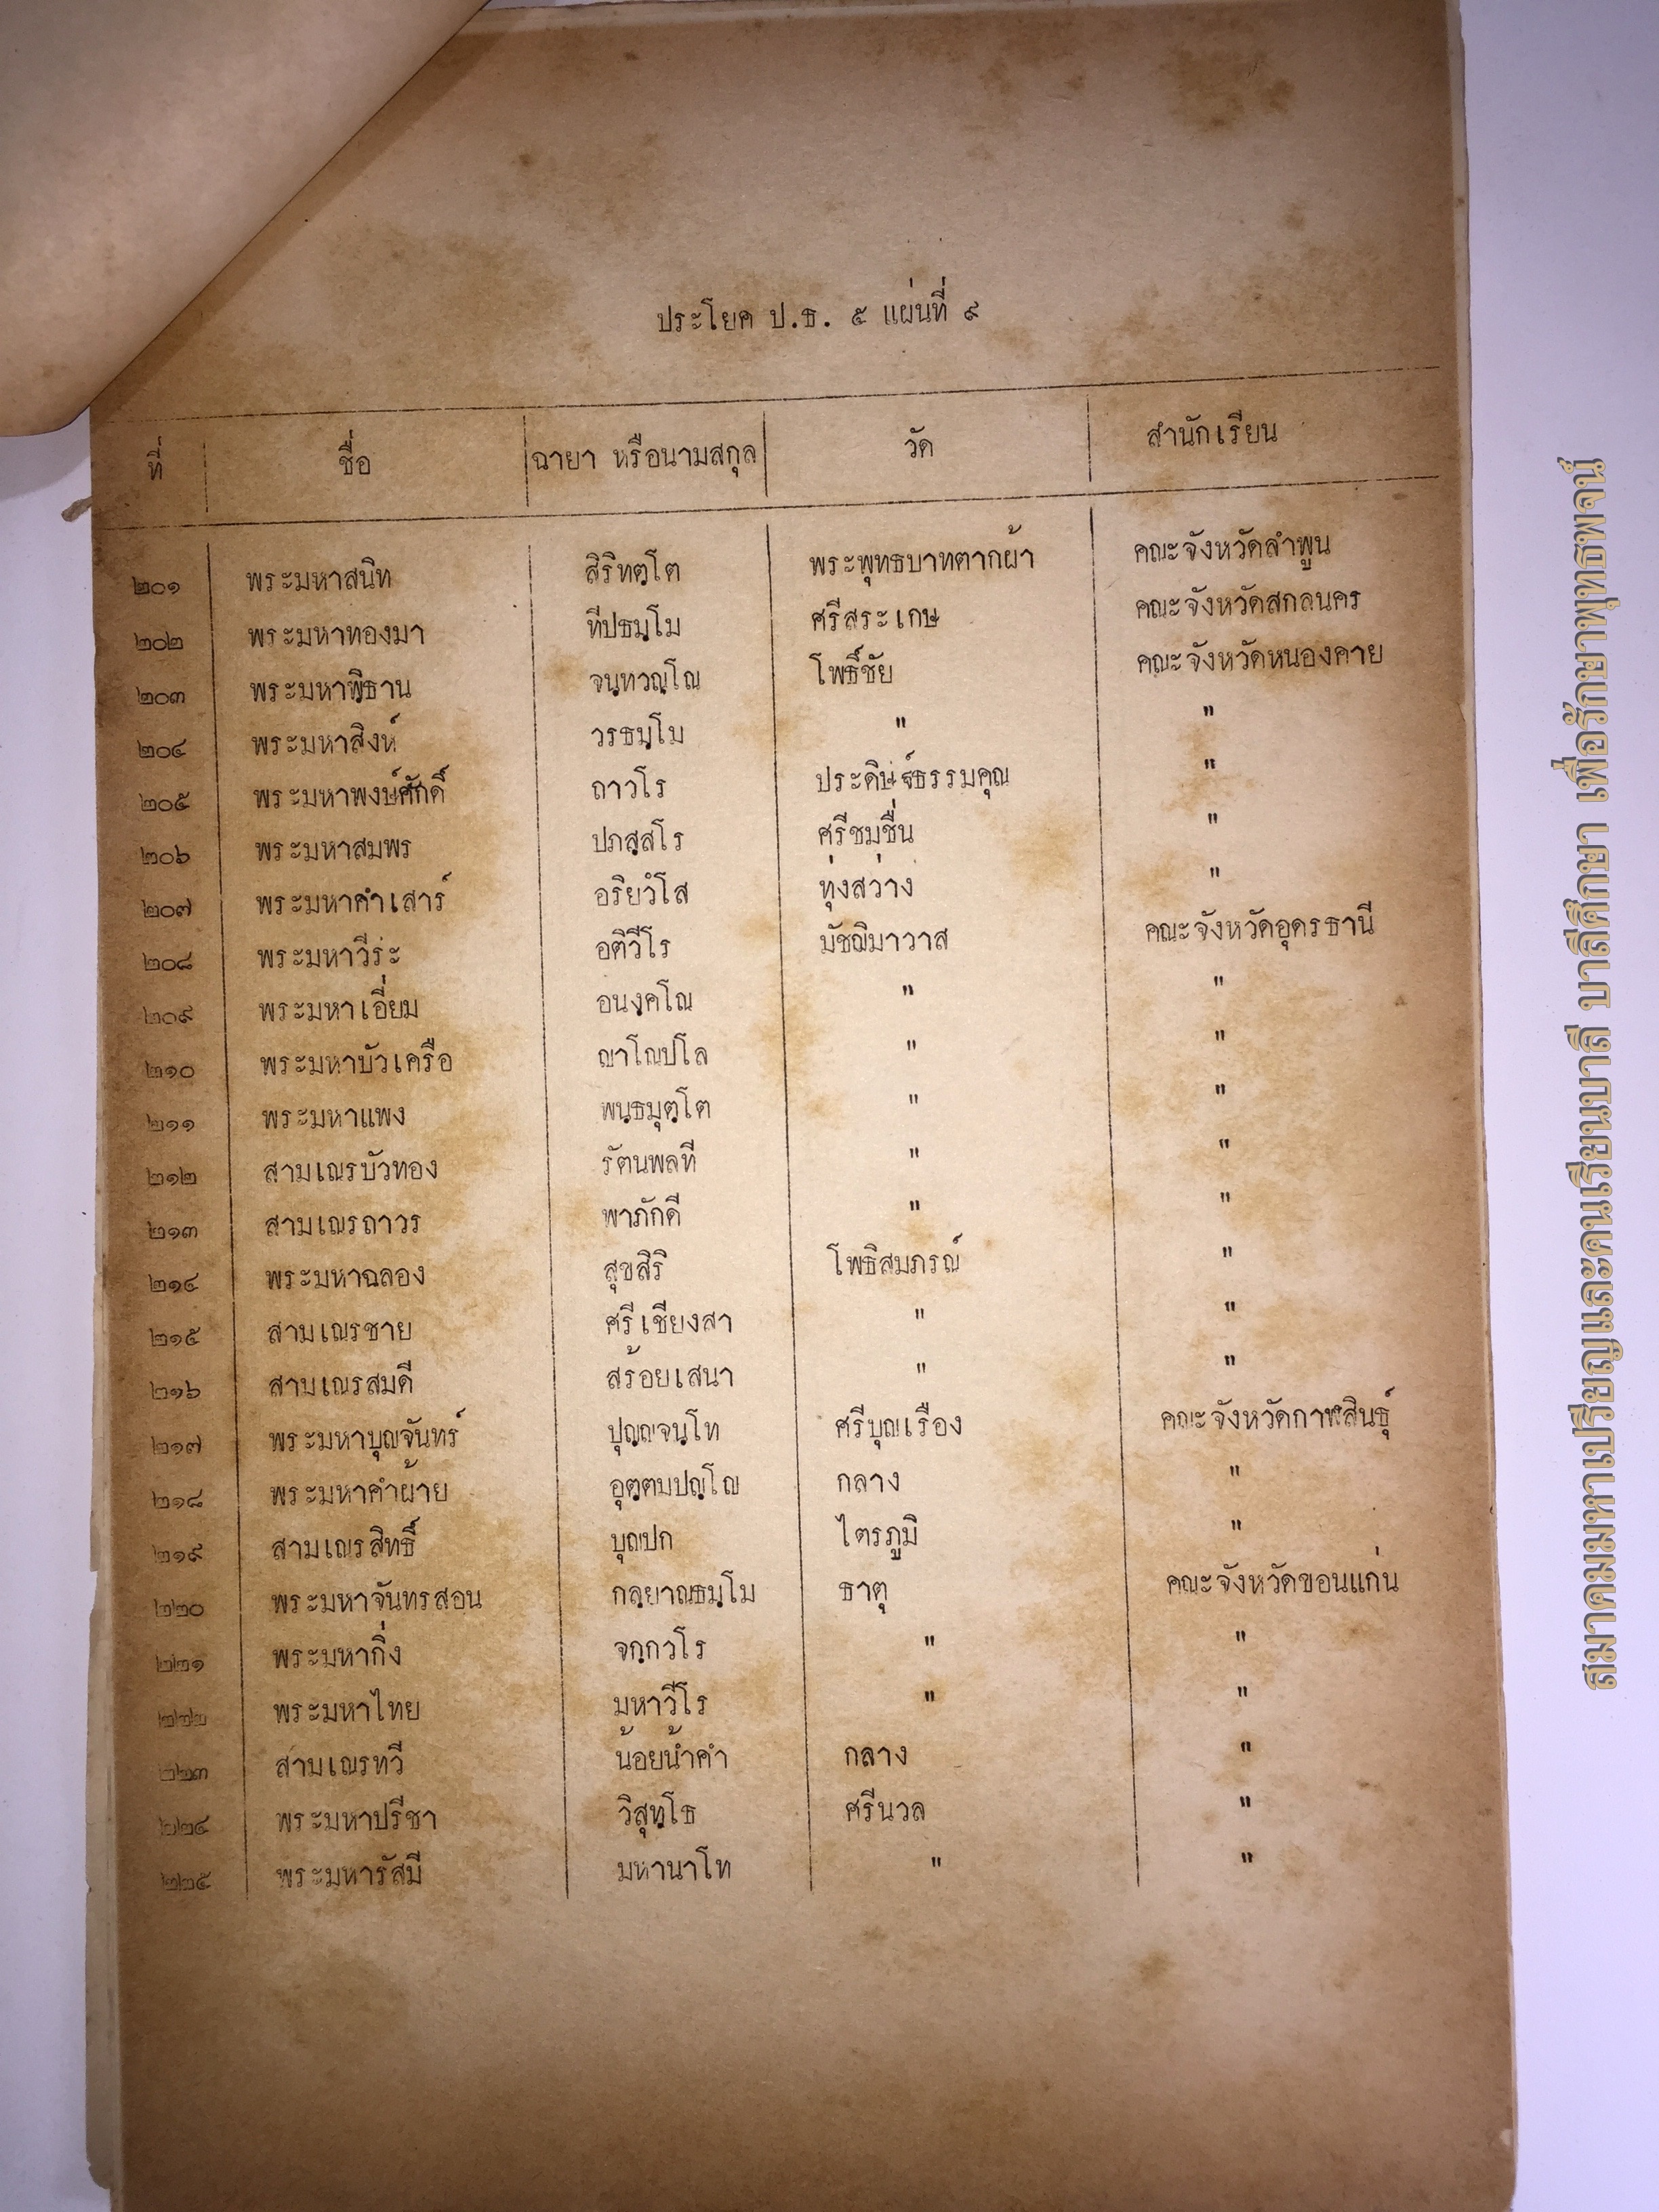 ประโยค ป.ธ. ๕ แผ่นที่ ๙
ที่ ชื่อ ฉายา หรือนามสกุล วัด สำนักเรียน
๒๐๑ พระมหาสนิท สิริทตฺโต พระพุทธบาทตากผ้า คณะจังหวัดลำพูน
๒๐๒ พระมหาทองมา ทีปธมฺโม ศรีสระเกษ คณะจังหวัดสกลนคร
๒๐๓ พระมหาพิธาน จนฺทวณฺโณ โพธิ์ชัย คณะจังหวัดหนองคาย
๒๐๔ พระมหาสิงห์ วรธมฺโม " "
๒๐๕ พระมหาพงษ์ศักดิ์ ถาวโร ประดิษฐ์ธรรมคุณ "
๒๐๖ พระมหาสมพร ปภสฺสโร ศรีชมชื่น "
๒๐๗ พระมหาคำเสาร์ อริยวํโส ทุ่งสว่าง "
๒๐๘ พระมหาวีระ อติวีโร มัชฌิมาวาส คณะจังหวัดอุดรธานี
๒๐๙ พระมหาเอี่ยม อนงฺคโณ " "
๒๑๐ พระมหาบัวเครือ ญาโณปโล " "
๒๑๑ พระมหาแพง พนฺธมุตฺโต " "
๒๑๒ สามเณรบัวทอง รัตนพลที " "
๒๑๓ สามเณรถาวร พาภักดี " "
๒๑๔ พระมหาฉลอง สุขสิริ โพธิสมภรณ์ "
๒๑๕ สามเณรชาย ศรีเชียงสา " "
๒๑๖ สามเณรสมดี สร้อยเสนา " "
๒๑๗ พระมหาบุญจันทร์ ปุญฺญจนฺโท ศรีบุญเรือง คณะจังหวัดกาฬสินธุ์
๒๑๘ พระมหาคำผ้าย อุตฺตมปญฺโญ กลาง "
๒๑๙ สามเณรสิทธิ์ บุญปก ไตรภูมิ "
๒๒๐ พระมหาจันทรสอน กลฺยาณธมฺโม ธาตุ คณะจังหวัดขอนแก่น
๒๒๑ พระมหากิ่ง จกฺกวโร " "
๒๒๒ พระมหาไทย มหาวีโร " "
๒๒๓ สามเณรทวี น้อยน้ำคำ กลาง "
๒๒๔ พระมหาปรีชา วิสุทฺโธ ศรีนวล "
๒๒๕ พระมหารัสมี มหานาโท " "
สมาคมมหาเปรียญและคนเรียนบาลี บาลีศึกษา เพื่อรักษาพุทธพจน์